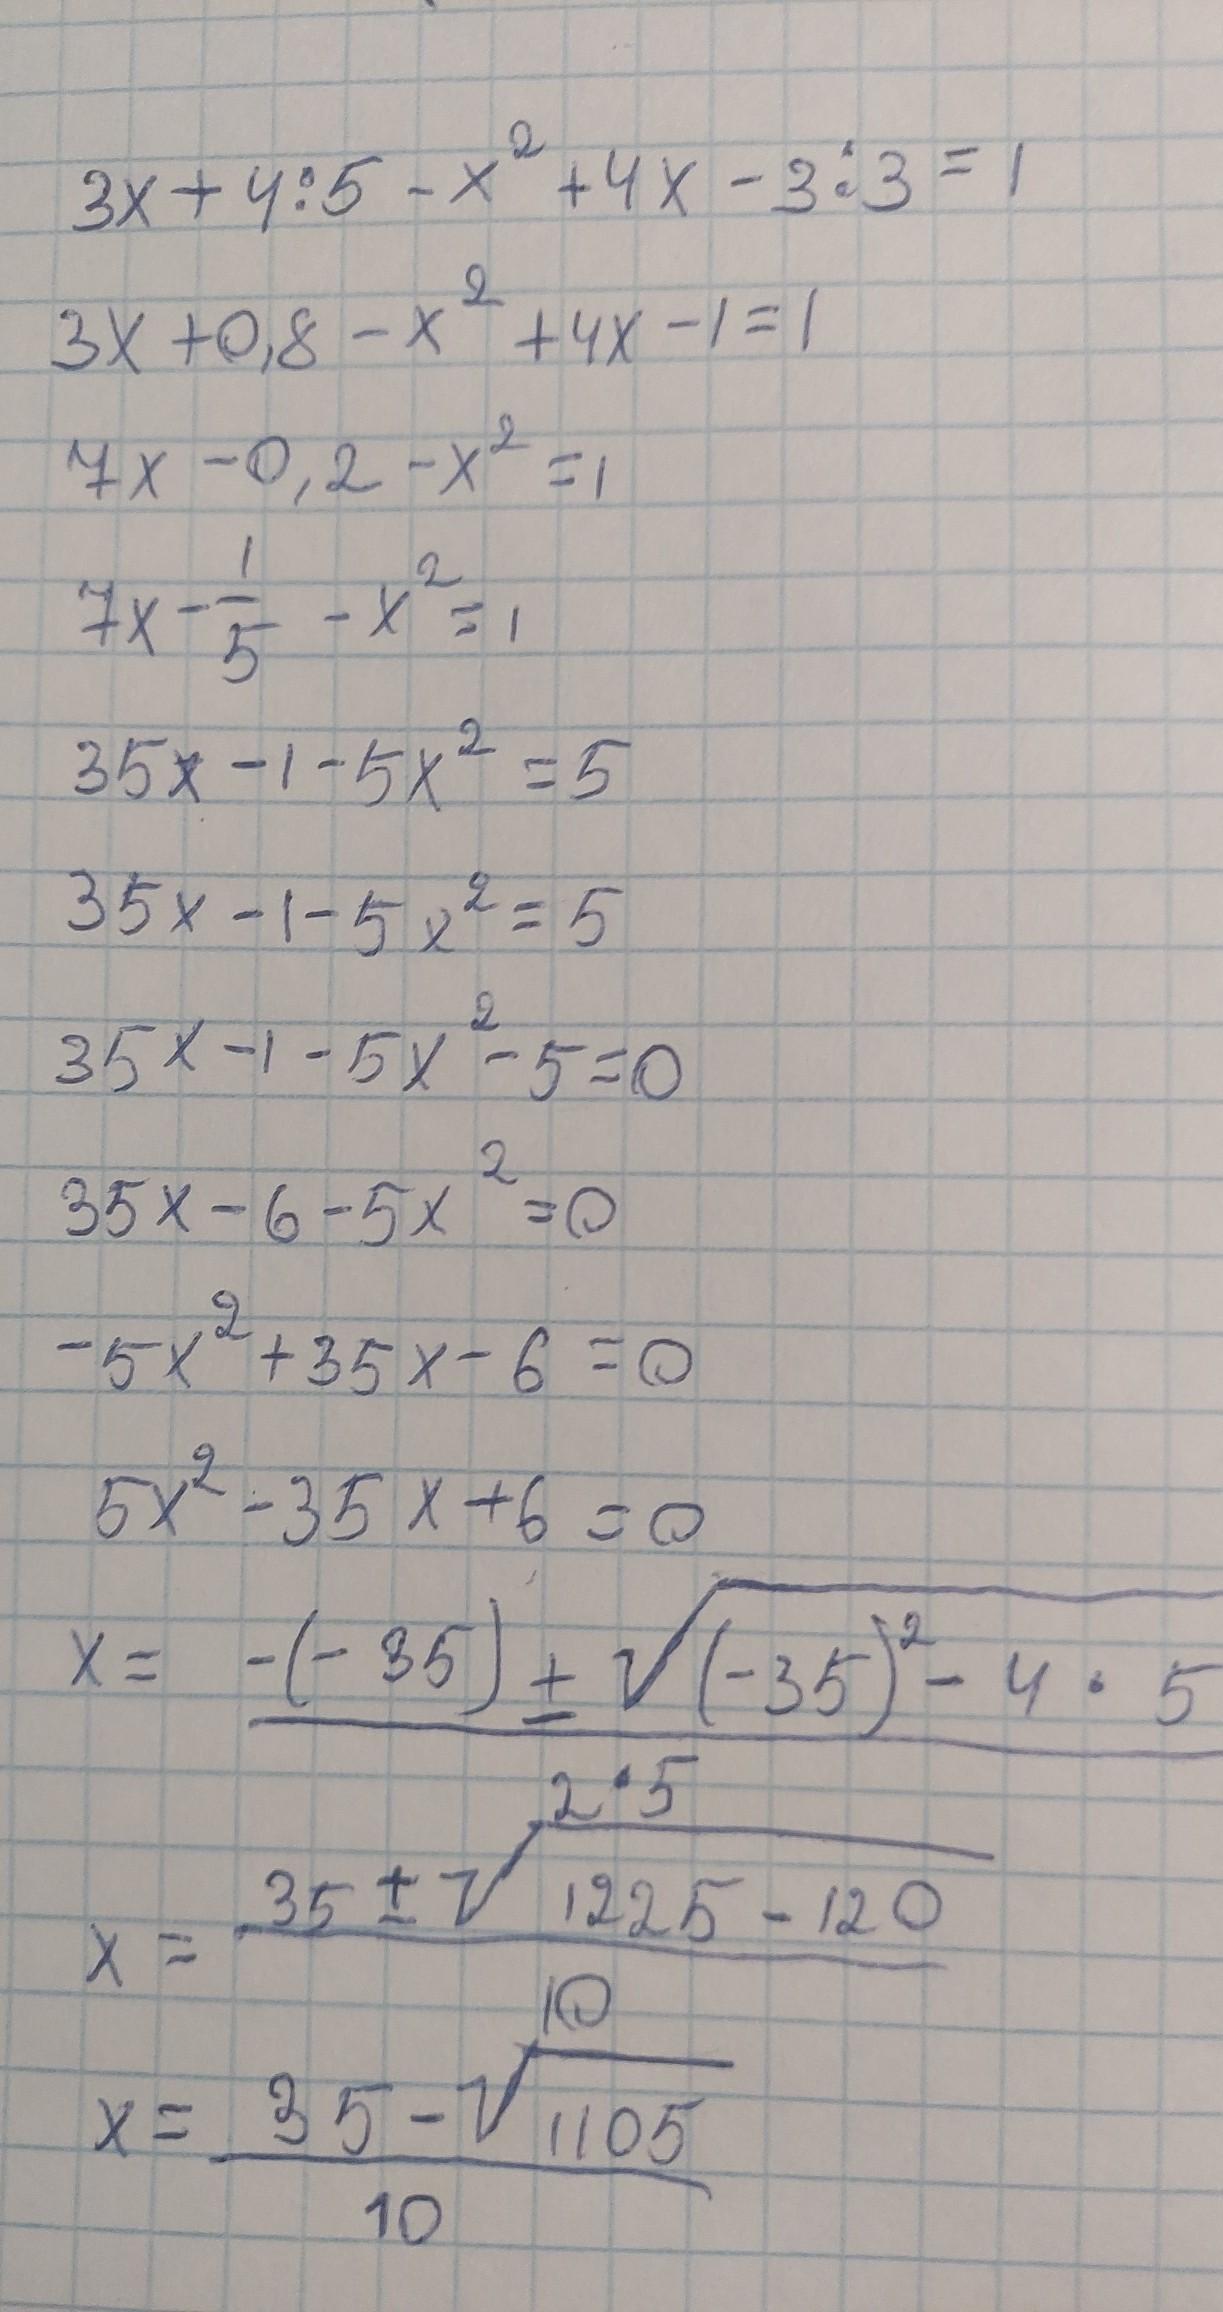 3x + 4:5 - x² + 4x - 3:3 = 1
3x + 0,8 - x² + 4x - 1 = 1
7x - 0,2 - x² = 1
7x - 1/5 - x² = 1
35x - 1 - 5x² = 5
35x - 1 - 5x² = 5
35x - 1 - 5x² - 5 = 0
35x - 6 - 5x² = 0
-5x² + 35x - 6 = 0
5x² - 35x + 6 = 0
x = -(-35) ± √(-35)² - 4 · 5
2·5
x = 35 ± √1225 - 120
10
x = 35 - √1105
10